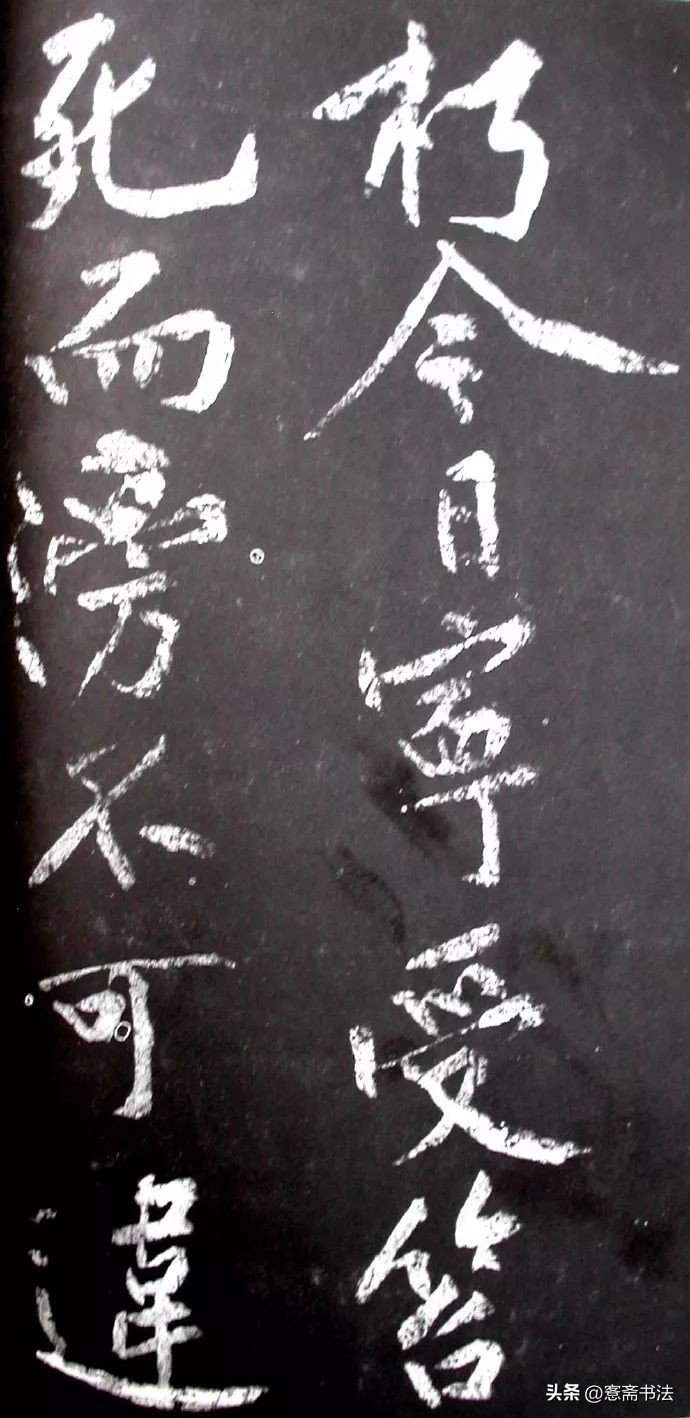 朽今日寧受笞
死而滂不可違
头条 @愙斋书法